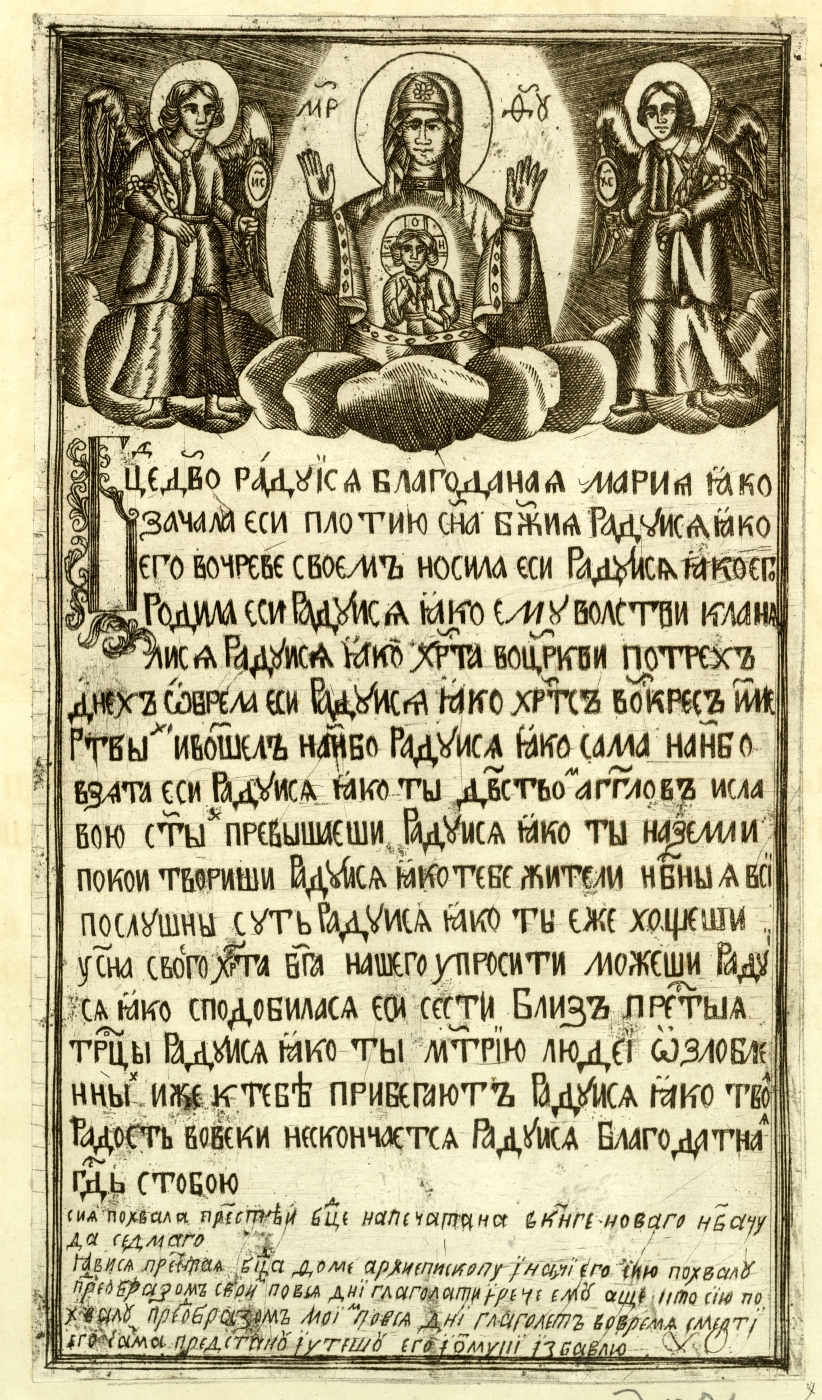 МР ѲУ
ИС ХС
Бцедво радуйся благоданая мария ꙗко
зачала еси плотию сна бжия Радуися ꙗко
его вочреве своемъ носила еси Радуися ꙗко ег
Родила еси Радуися ꙗко ему волстви клана
лися Радуися ꙗко хрта воцркви потрехъ
днехъ ѡбрела еси Радуися ꙗко хртсъ вокресъ изме
ртвых ивошелъ нанбо Радуися ꙗко сама нанбо
взата еси Радуися ꙗко ты двством аггловъ исла
вою стых превышаеши Радуися ꙗко ты наземли
покои твориши Радуися ꙗко тебе жители нбныя всї
послушны суть Радуися ꙗко ты еже хощеши
усна свого хрта бга нашего упросити можеши Раду
ся ꙗко сподобилася еси сести близъ претыя
трцы Радуися ꙗко ты мтрїю людеї ѡзлобле
нных иже к тебѣ прибегаютъ Радуися ꙗко тво
Радость вовеки нескончается Радуися благодатная
гдь стобою
сия похвала престѣи бце напечатана в кнге новаго нба чу
да седмаго
Ꙗвися претая бца доме архиепископу їначї его сию похвалу
преобразомъ свои повся днї глаголати їрече ему аще кто сїю по
хвалу преобразомъ моїм повся днї глаголетъ вовремя смерті
его сама предстану їутешу его їѿ муки їзбавлю